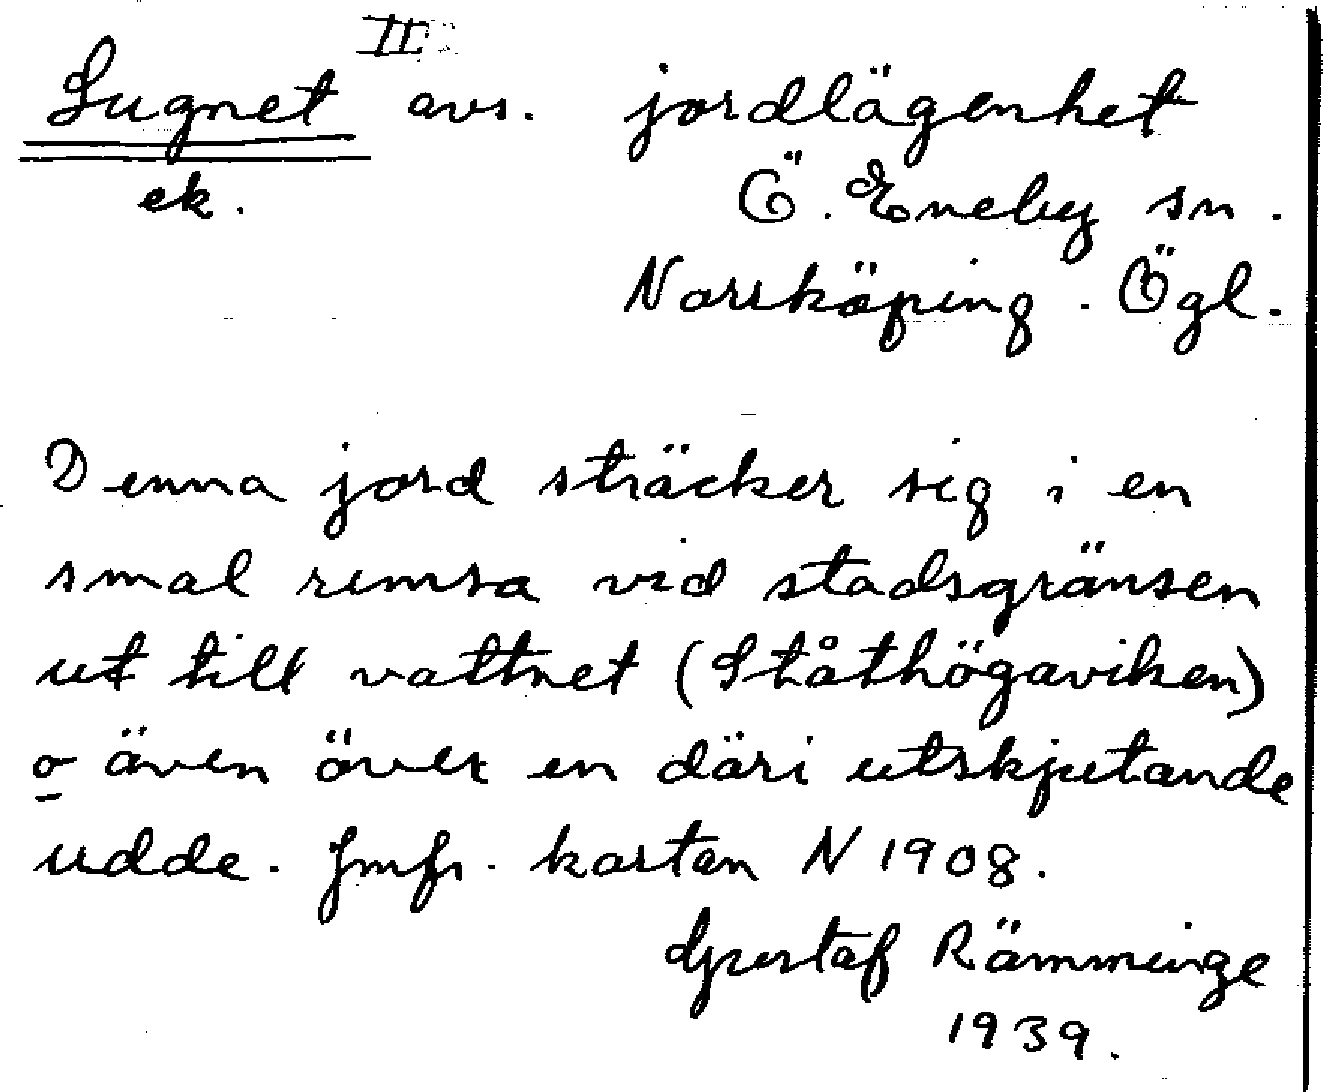 Lugnet II avs. jordlägenhet
ek. Ö. Eneby sn.
Norrköping. Ögl.
Denna jord sträcker sig i en
smal remsa vid stadsgränsen
ut till vattnet (Ståthögaviken)
o även över en däri utskjutande
udde. Jmfr. kartan N 1908.
Gustaf Rämminge
1939.